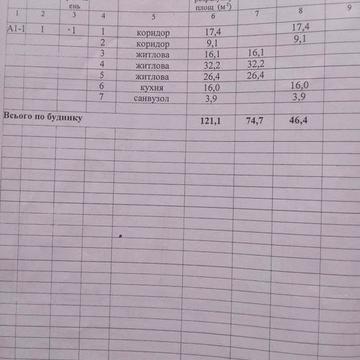 ень площ (м²)
1 2 3 4 5 6 7 8 9
А1-1 1 1 1 коридор 17,4 17,4
2 коридор 9,1 9,1
3 житлова 16,1 16,1
4 житлова 32,2 32,2
5 житлова 26,4 26,4
6 кухня 16,0 16,0
7 санвузол 3,9 3,9
Всього по будинку 121,1 74,7 46,4